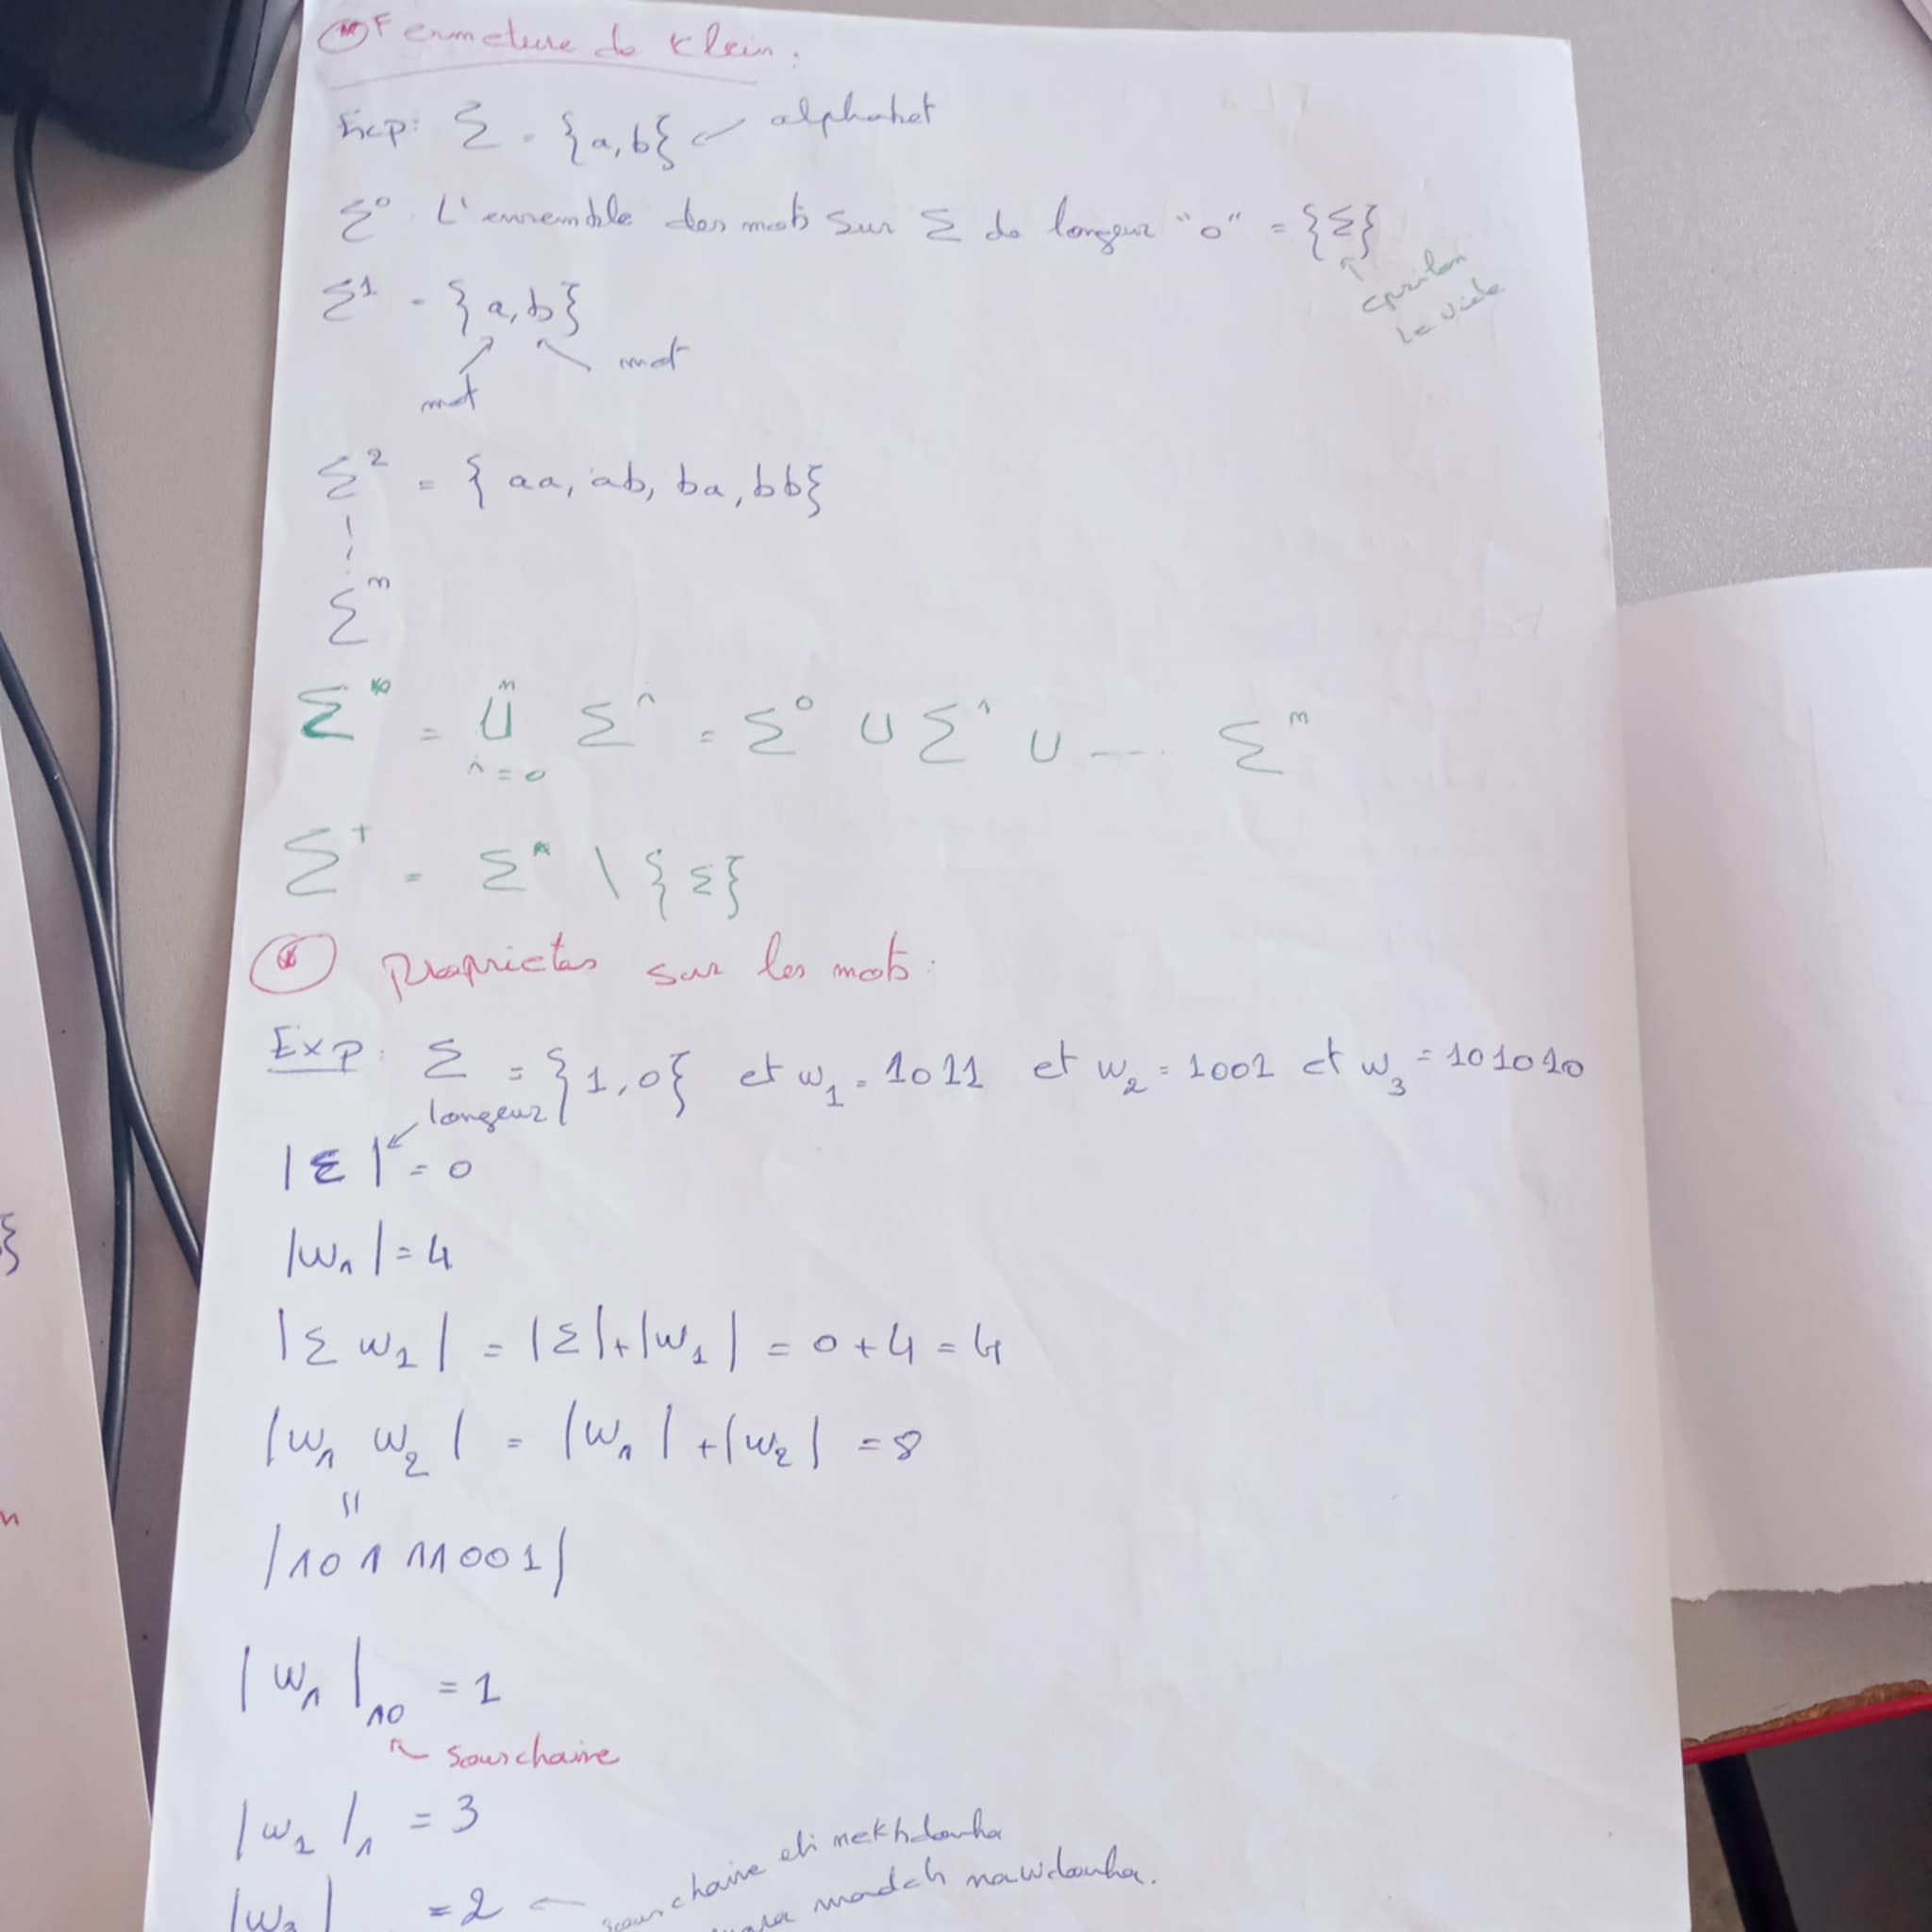 Fermeture de Klein :
Exp: Σ = {a,b} ← alphabet
Σ⁰ L'ensemble des mots sur Σ de longeur "0" = {Σ}
epsilon
le vide
Σ¹ = {a,b}
mot mot
Σ² = {aa, ab, ba, bb}
Σⁿ
Σ* = ⋃ⁿᵢ₌₀ Σⁱ = Σ⁰ ∪ Σ¹ ∪ --- Σⁿ
Σ⁺ = Σ* \ {Σ}
Proprietes sur les mots :
Exp: Σ = {1,0} et w₁ = 1011 et w₂ = 1001 et w₃ = 101010
longeur
|Σ| = 0
|w₁| = 4
|Σ w₁| = |Σ|+|w₁| = 0+4 = 4
|w₁ w₂| = |w₁|+|w₂| = 8
||
|10111001|
|w₁|₁₀ = 1
souschaine
|w₁|₁ = 3
|w₃| = 2 ←
souschaine eli nekhdouha
madch nawdouha.